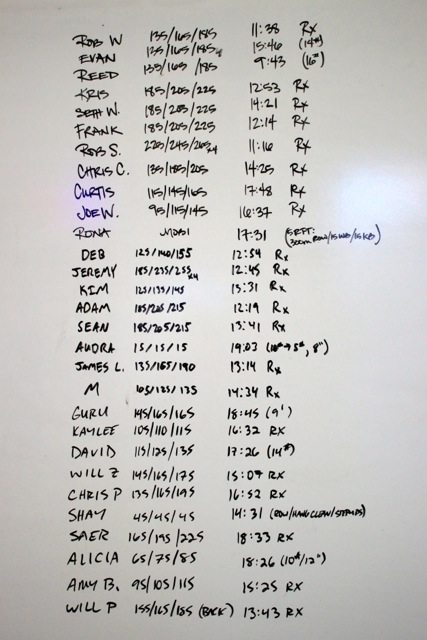 ROB W 135/165/185 11:38 Rx
EVAN 135/165/185x4 15:46 (14#)
REED 135/165/185 9:43 (16#)
KRIS 185/205/225 12:53 Rx
SETH W. 185/205/225 14:21 Rx
FRANK 185/205/225 12:14 Rx
ROB S. 225/245/265x4 11:16 Rx
CHRIS C. 135/185/205 14:25 Rx
CURTIS 115/145/165 17:48 Rx
JOE W. 95/115/145 16:37 Rx
RONA MOBI 17:31 (5 RFT: 300m ROW/15 WB/15 KB)
DEB 125/140/155 12:54 Rx
JEREMY 185/235/255x4 12:45 Rx
KIM 125/135/145 15:31 Rx
ADAM 185/205/215 12:19 Rx
SEAN 185/205/215 13:41 Rx
AUDRA 15/15/15 19:03 (10#→5#, 8")
JAMES L. 135/165/190 13:14 Rx
M 105/125/135 14:34 Rx
GURU 145/165/165 18:45 (9')
KAYLEE 105/110/115 16:32 RX
DAVID 115/125/135 17:26 (14#)
WILL Z 145/165/175 15:07 RX
CHRIS P 135/165/195 16:52 RX
SHAY 45/45/45 14:31 (ROW/HANG CLEAN/STEPUPS)
SAER 165/195/225 18:33 RX
ALICIA 65/75/85 18:26 (10#/12")
AMY B. 95/105/115 15:25 RX
WILL P 155/165/185 (BACK) 13:43 RX